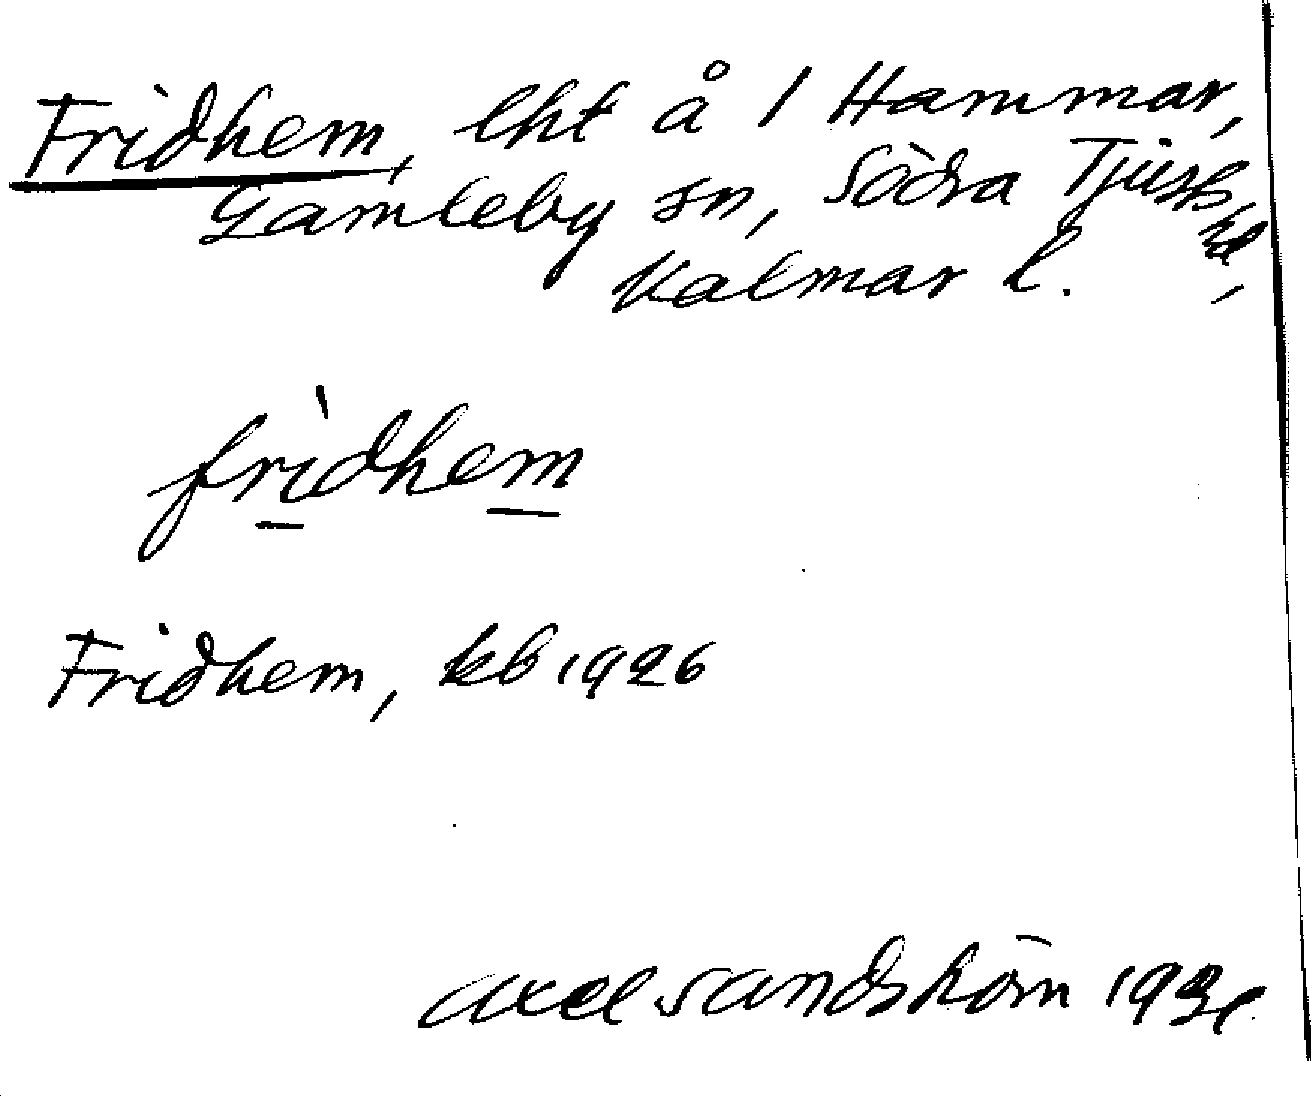 Fridhem, lht å 1 Hammar,
Gamleby sn, Södra Tjusts hd,
Kalmar l.
fridhem
Fridhem, kb 1926
Axel Sandström